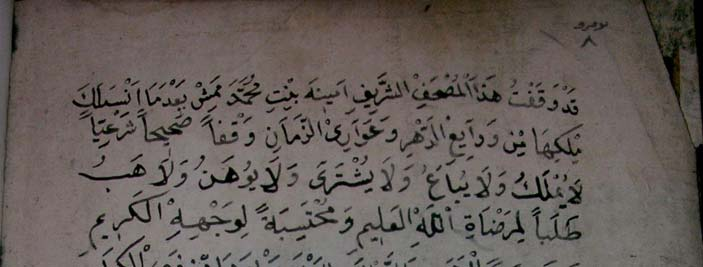 نومرو
٨
قَدْ وَقَفْتُ هَذَا الْمُصْحَفِ الشَّرِيفِ اَمِينَه بِنْتِ مُحَمَّدَ مَمِشْ بَعْدَمَا
مِلْكِهَا مِنْ وَدَايِعِ الدَّهْرِ وَعَوَارِىْ الزَّمَانِ وَقْفاً صَحِيحاً شَرْعِيّاً
لَا يُمْلَكُ وَلَا يُبَاعُ وَلَا يُشْتَرَى وَلَا يُوهَنُ وَلَا هَبُ
طَلَباً لِمَرْضَاةِ اللّٰهِ الْعَلِيمِ وَمُحْتَسِبَةً لِوَجْهِهِ الْكَرِيمِ